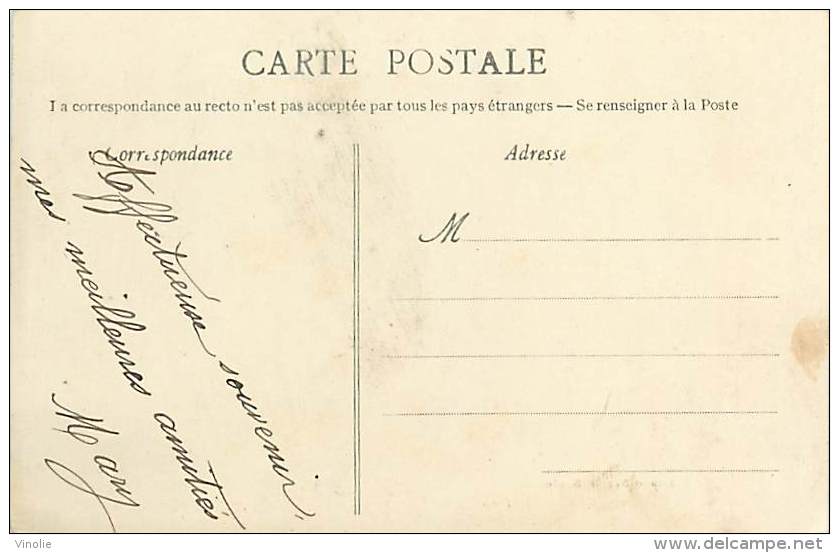 CARTE POSTALE
La correspondance au recto n'est pas acceptée par tous les pays étrangers — Se renseigner à la Poste
Correspondance
Adresse
M
Affectueuse souvenir,
mes meilleures amitiés
Mary
Vinolie
delcampe.net